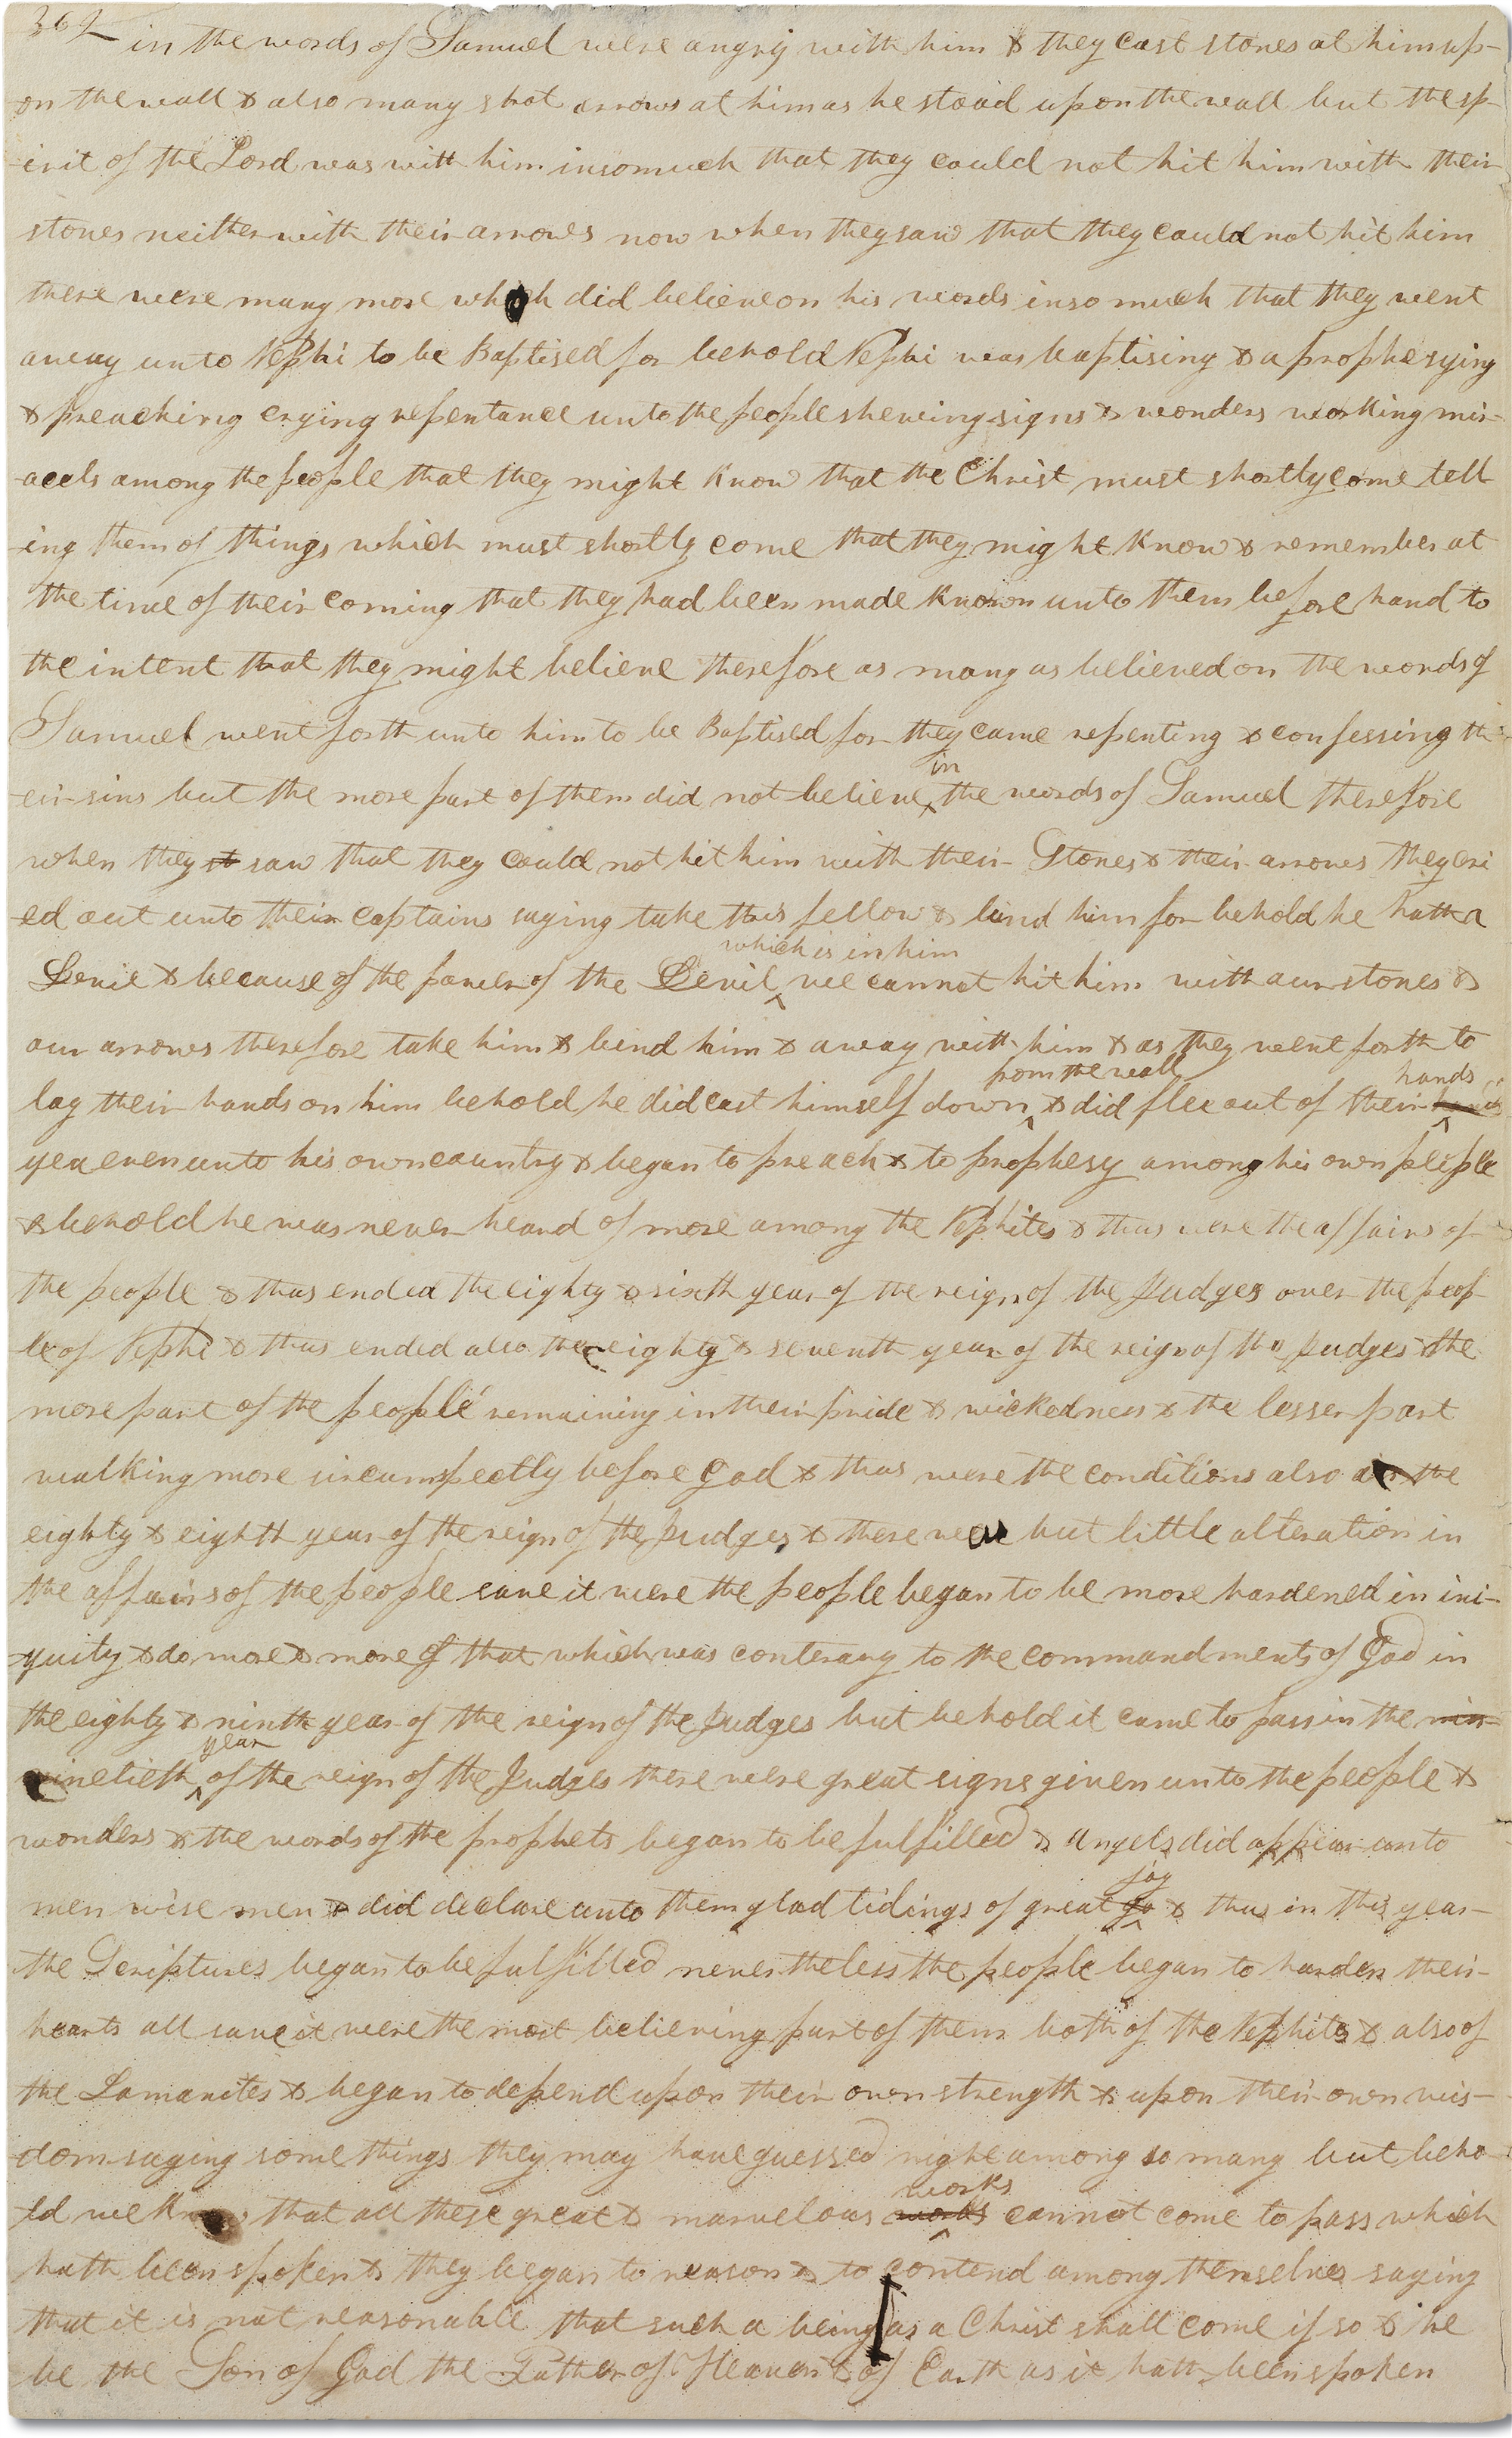 362 in the words of Samuel were angry with him & they cast stones at him up-
on the wall & also many shot arrows at him as he stood upon the wall but the sp-
-irit of the Lord was with him insomuch that they could not hit him with their
stones neither with their arrows now when they saw that they could not hit him
there were many more which did believe on his words insomuch that they went
away unto Nephi to be Baptised for behold Nephi was baptising & a prophesying
& preaching crying repentance unto the people shewing signs & wonders working mir-
-acels among the people that they might know that the Christ must shortly come tell
-ing them of things which must shortly come that they might know & remember at
the time of their coming that they had been made known unto them before hand to
the intent that they might believe therefore as many as believed on the words of
Samuel went forth unto him to be Baptised for they came repenting & confessing th-
in
eir sins but the more part of them did not believe the words of Samuel therefore
when they st saw that they could not hit him with their Stones & their arrows they cri
ed out unto their captains saying take this fellow & bind him for behold he hath a
which is in him
Devil & because of the power of the Devil we cannot hit him with our stones &
our arrows therefore take him & bind him & away with him & as they went forth to
from the wall hands
lay their hands on him behold he did cast himself down & did flee out of their
yea even unto his own country & began to preach & to prophesy among his own people
& behold he was never heard of more among the Nephites & thus were the affairs of
the people & thus ended the eighty & sixth year of the reign of the Judges over the peop
le of Nephi & thus ended also the eighty & seventh year of the reign of the Judges the
more part of the people remaining in their pride & wickedness & the lesser part
walking more circumspectly before God & thus were the conditions also in the
eighty & eighth year of the reign of the Judges & there was but little alteration in
the affairs of the people save it were the people began to be more hardened in ini-
-quity & do more & more of that which was conterary to the commandments of God in
the eighty & ninth year of the reign of the Judges but behold it came to pass in the nin-
year
ninetieth of the reign of the Judges there were great signs given unto the people &
wonders & the words of the prophets began to be fulfilled & Angels did appear unto
joy
men wise men & did declare unto them glad tidings of great jo & thus in this year
the Scriptures began to be fulfilled nevertheless the people began to harden their
hearts all save it were the most believing part of them both of the Nephites & also of
the Lamanites & began to depend upon their own strength & upon their own wis-
-dom saying some things they may have guessed right among so many but beho-
works
ld we know that all these great & marvelous works cannot come to pass which
hath been spoken & they began to reason & to contend among themselves saying
that it is not reasonable that such a being as a Christ shall come if so & he
be the Son of God the Father of Heaven & of Earth as it hath been spoken